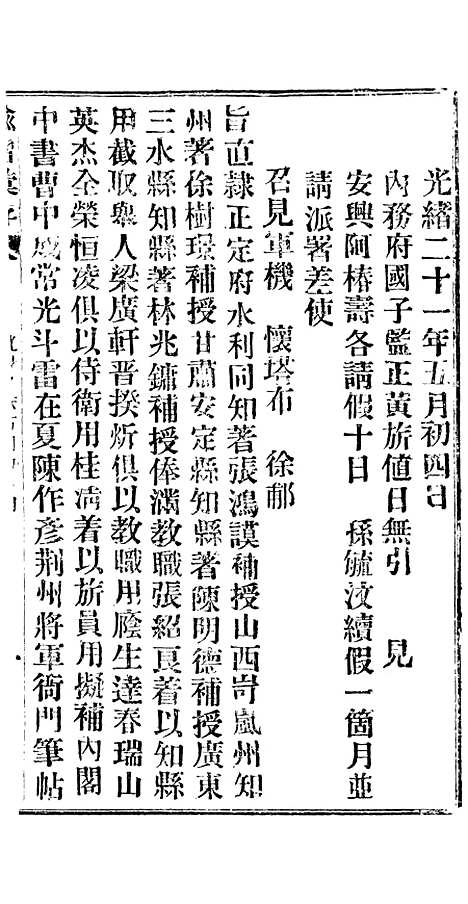 光緒二十一年五月初四日
內務府國子監正黃旂値日無引　見
安興阿椿壽各請假十日　孫毓汶續假一箇月並
請派署差使
召見軍機　懷塔布　徐郙
旨直隸正定府水利同知著張鴻謨補授山西岢嵐州知
州著徐樹璟補授甘肅安定縣知縣著陳明德補授廣東
三水縣知縣著林兆鏞補授俸滿教職張紹良着以知縣
用截取舉人梁廣軒晉揆炘俱以教職用廕生達春瑞山
英杰全榮恒凌俱以侍衛用桂淸着以旂員用擬補內閣
中書曹中成常光斗雷在夏陳作彥荆州將軍衙門筆帖